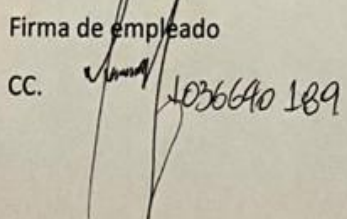 Firma de empleado
CC. 1036640189